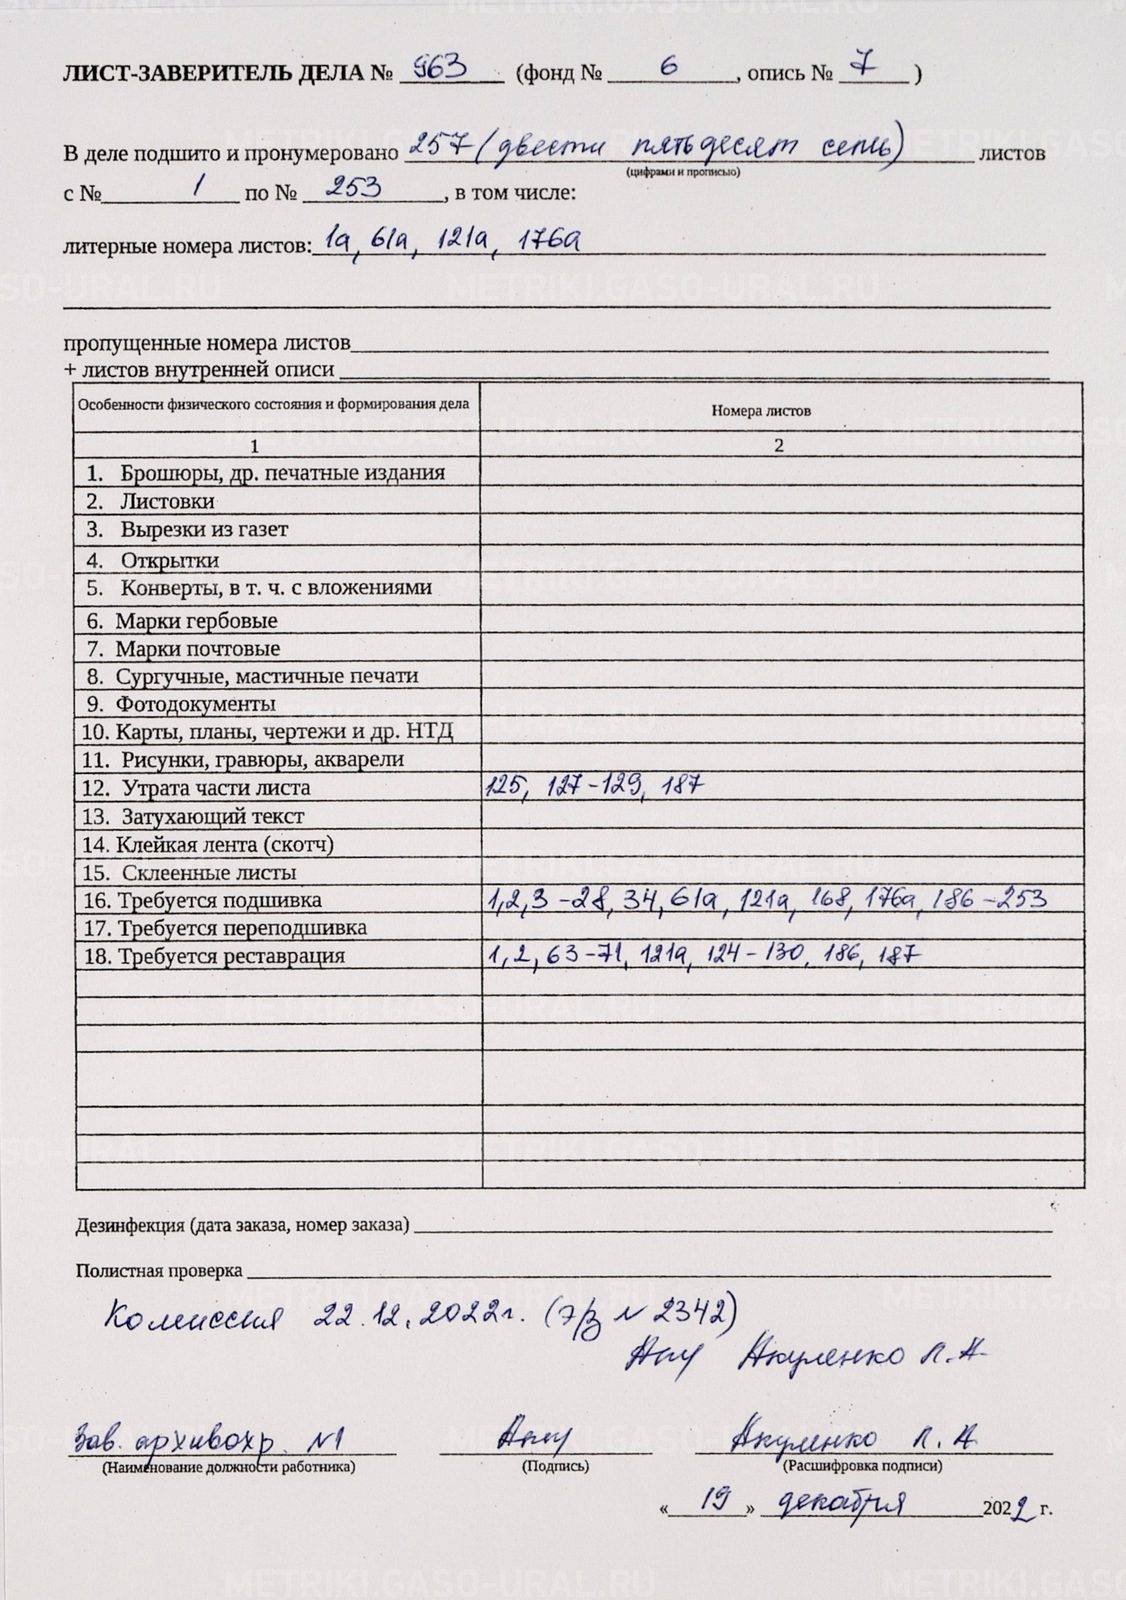 ЛИСТ-ЗАВЕРИТЕЛЬ ДЕЛА № 963 (фонд № 6, опись № 7)
В деле подшито и пронумеровано 257 (двести пятьдесят семь) листов
(цифрами и прописью)
с № 1 по № 253, в том числе:
литерные номера листов: 1а, 61а, 121а, 176а
пропущенные номера листов
+ листов внутренней описи
Особенности физического состояния и формирования дела Номера листов
1 2
1. Брошюры, др. печатные издания
2. Листовки
3. Вырезки из газет
4. Открытки
5. Конверты, в т. ч. с вложениями
6. Марки гербовые
7. Марки почтовые
8. Сургучные, мастичные печати
9. Фотодокументы
10. Карты, планы, чертежи и др. НТД
11. Рисунки, гравюры, акварели
12. Утрата части листа 125, 127-129, 187
13. Затухающий текст
14. Клейкая лента (скотч)
15. Склеенные листы
16. Требуется подшивка 1,2,3-28, 34, 61а, 121а, 168, 176а, 186-253
17. Требуется переподшивка
18. Требуется реставрация 1, 2, 63-71, 121а, 124-130, 186, 187
Дезинфекция (дата заказа, номер заказа)
Полистная проверка
Комиссия 22.12.2022г. (э/з № 2342)
Акуленко Л.А.
Зав. архивохр. №1 Акуленко Л.А.
(Наименование должности работника) (Подпись) (Расшифровка подписи)
«19» декабря 2022 г.
METRIKI.GASO-URAL.RU